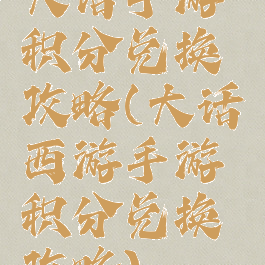 大话手游
积分兑换
攻略(大话
西游手游
积分兑换
攻略)